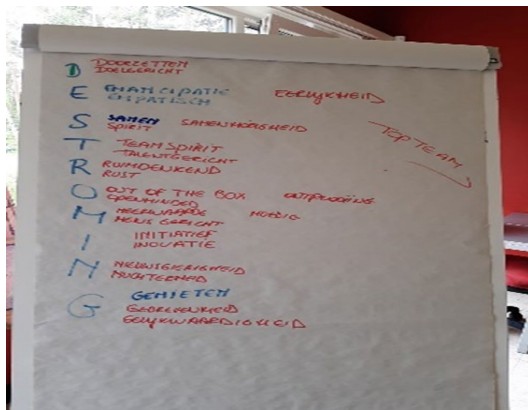 D DOORZETTEN
DOELGERICHT
E EMANCIPATIE EERLIJKHEID
EMPATISCH
S SAMEN SAMENHORIGHEID
SPIRIT
TOP TEAM
T TEAM SPIRIT
TALENTGERICHT
R RUIMDENKEND
RUST
O OUT OF THE BOX ONTPLOOIING
OPENMINDED
M MEERWAARDE MOEDIG
MENS GERICHT
I INITIATIEF
INOVATIE
N NIEUWSGIERIGHEID
NUCHTERHEID
G GENIETEN
GEDREVENHEID
GELIJKWAARDIGHEID